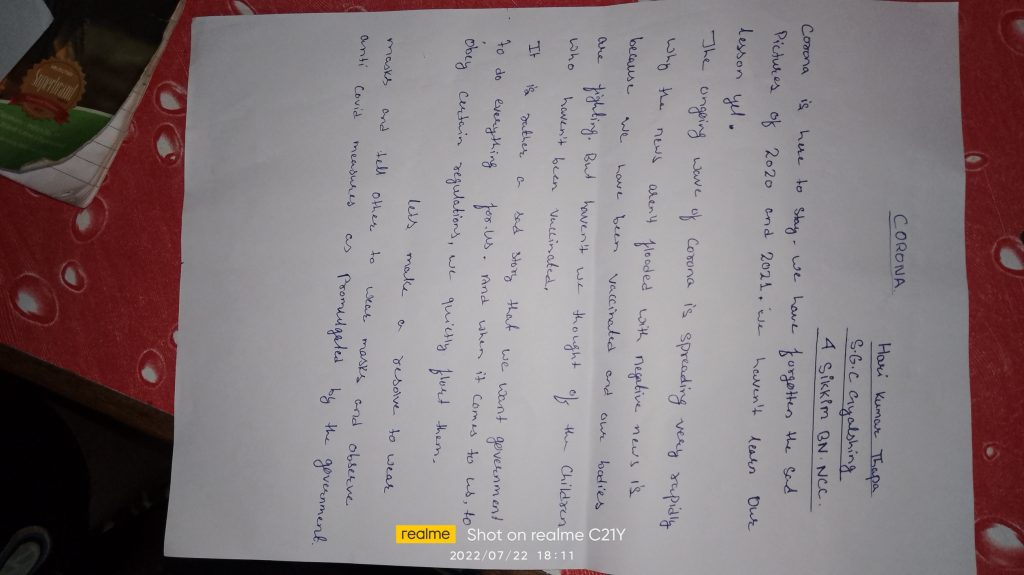 CORONA
Hari Kumar Thapa
S.G.C Gyalshing
4 SIKKIM BN. NCC.
Corona is here to stay. we have forgotten the sad
Pictures of 2020 and 2021. we haven't learn our
lesson yet.
The ongoing wave of Corona is spreading very rapidly
why the news aren't flooded with negative news is
because we have been vaccinated and our bodies
are fighting. But haven't we thought of the children
who haven't been vaccinated.
It is rather a sad story that we want government
to do everything for us. And when it comes to us, to
obey certain regulations, we quickly flout them.
lets make a resolve to wear
masks and tell other to wear masks and observe
anti covid measures as Promulgated by the government.
realme Shot on realme C21Y
2022/07/22 18:11